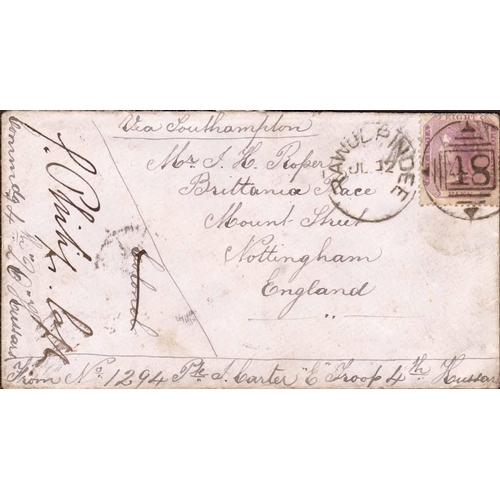 Via Southampton
Mr J. H. Roper
Brittania Place
Mount Street
Nottingham
England
RAWUL PINDEE
JL 12
48
Colonel
J. Philips Capt
Commdg 4th Hussars
From No. 1294 Pte J. Carter "E" Troop 4th Hussars